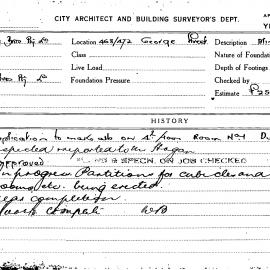 CITY ARCHITECT AND BUILDING SURVEYOR'S DEPT.
Location 468/472 George Street Description
Class Nature of Foundation
Live Load Depth of Footings
Foundation Pressure Checked by
Estimate £25
HISTORY
application to make alts on 4th floor Room No 1
Inspected reported to Mr Hogan
Approved & SPECN. ON JOB CHECKED
In progress Partitions for cubicles and
etc. being erected.
Near completion
Work Complete WB